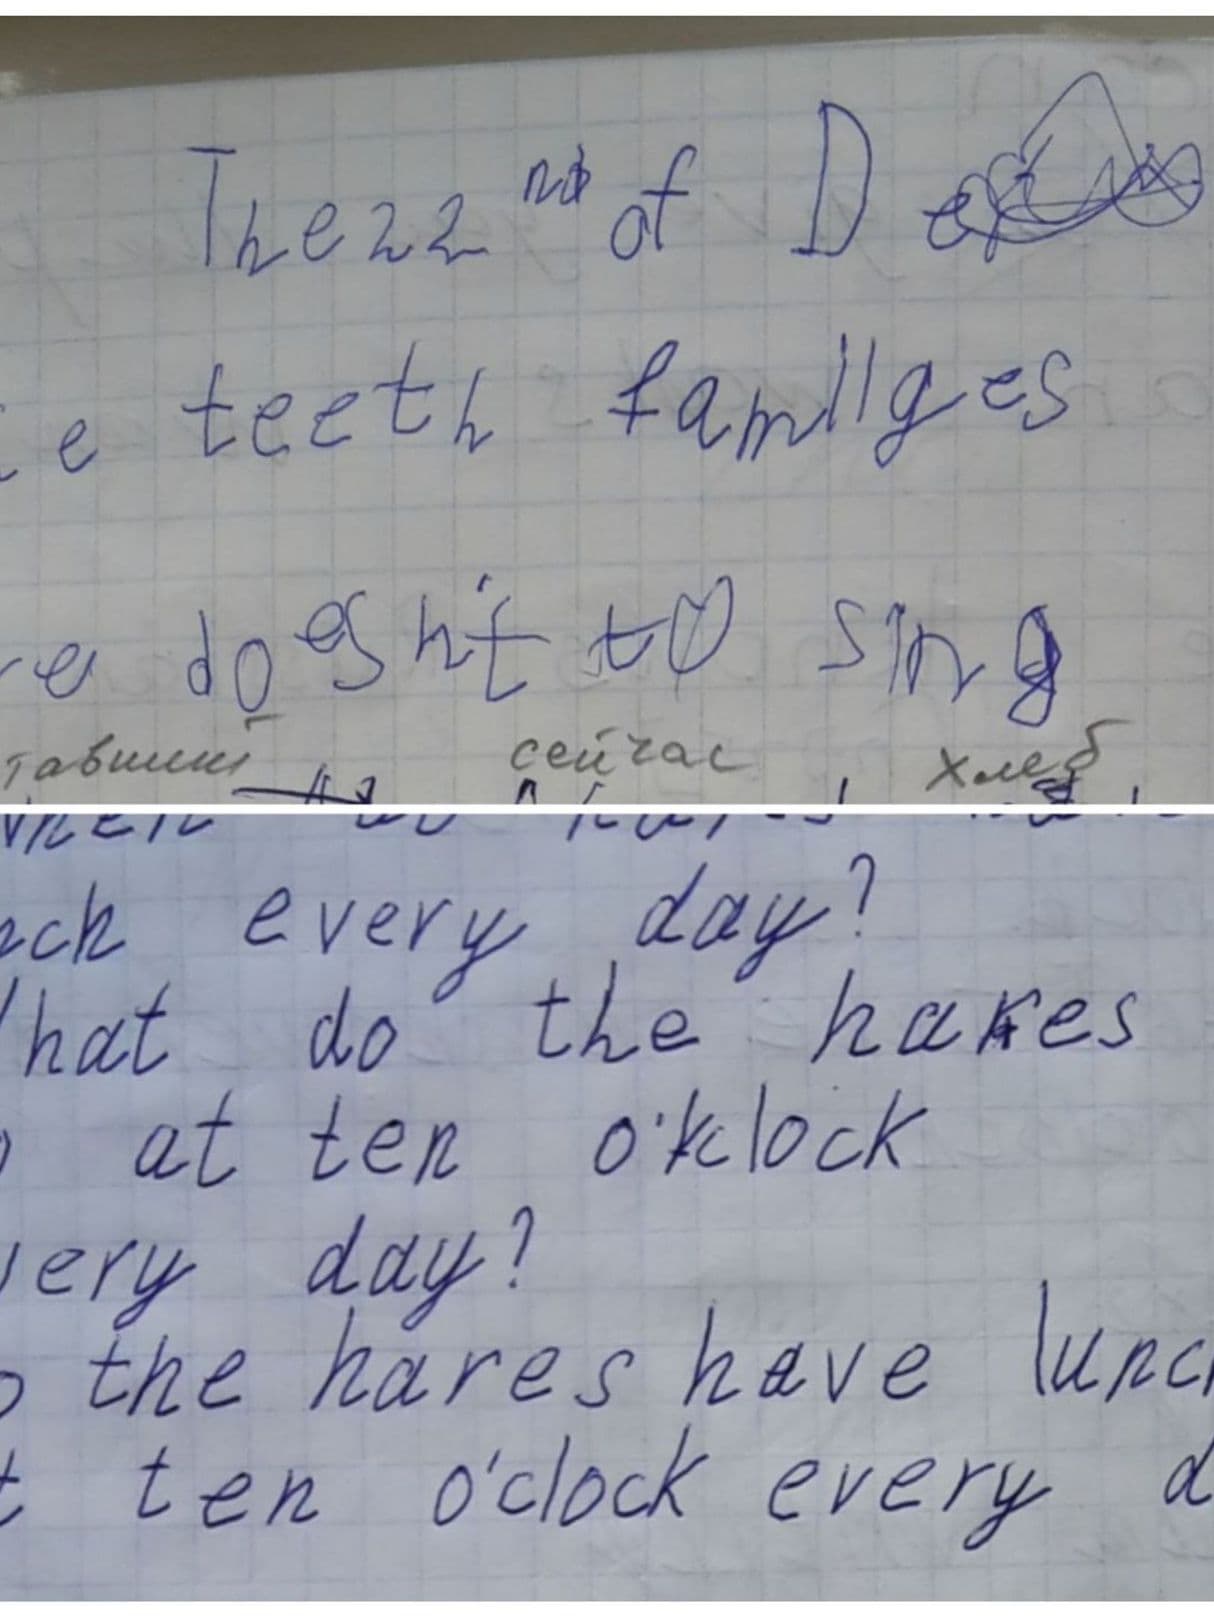 The 22nd of D
e teeth familges
doesn't to sing
сейчас хлеб
every day?
hat do the hares
at ten o'klock
very day?
the hares have lunc
ten o'clock every d